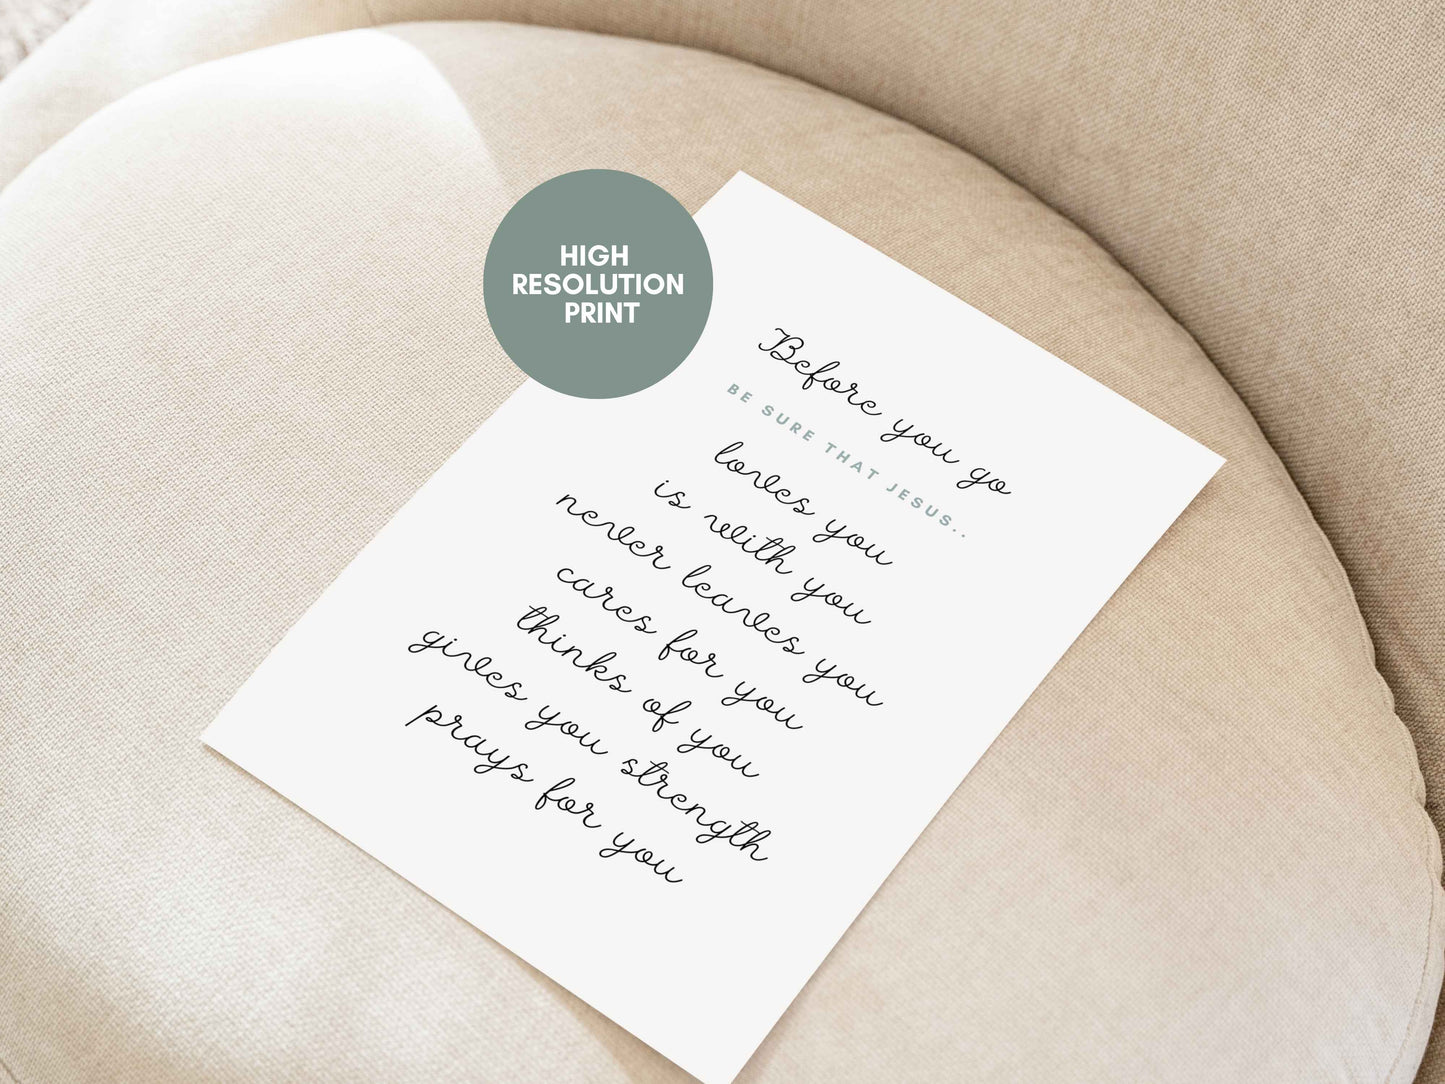 HIGH
RESOLUTION
PRINT
Before you go
BE SURE THAT JESUS..
loves you
is with you
never leaves you
cares for you
thinks of you
gives you strength
prays for you